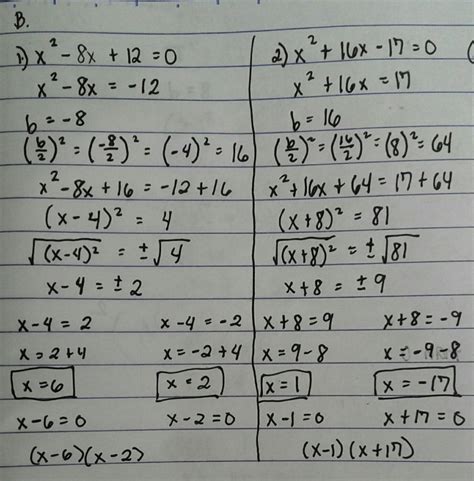 B.
1) x² - 8x + 12 = 0
x² - 8x = -12
b = -8
(b/2)² = (-8/2)² = (-4)² = 16
x² - 8x + 16 = -12 + 16
(x - 4)² = 4
√(x-4)² = ±√4
x - 4 = ± 2
x - 4 = 2    x - 4 = -2
x = 2 + 4    x = -2 + 4
x = 6    x = 2
x - 6 = 0    x - 2 = 0
(x-6)(x-2)
2) x² + 16x - 17 = 0
x² + 16x = 17
b = 16
(b/2)² = (16/2)² = (8)² = 64
x² + 16x + 64 = 17 + 64
(x + 8)² = 81
√(x+8)² = ±√81
x + 8 = ± 9
x + 8 = 9    x + 8 = -9
x = 9 - 8    x = -9 - 8
x = 1    x = -17
x - 1 = 0    x + 17 = 0
(x-1)(x+17)